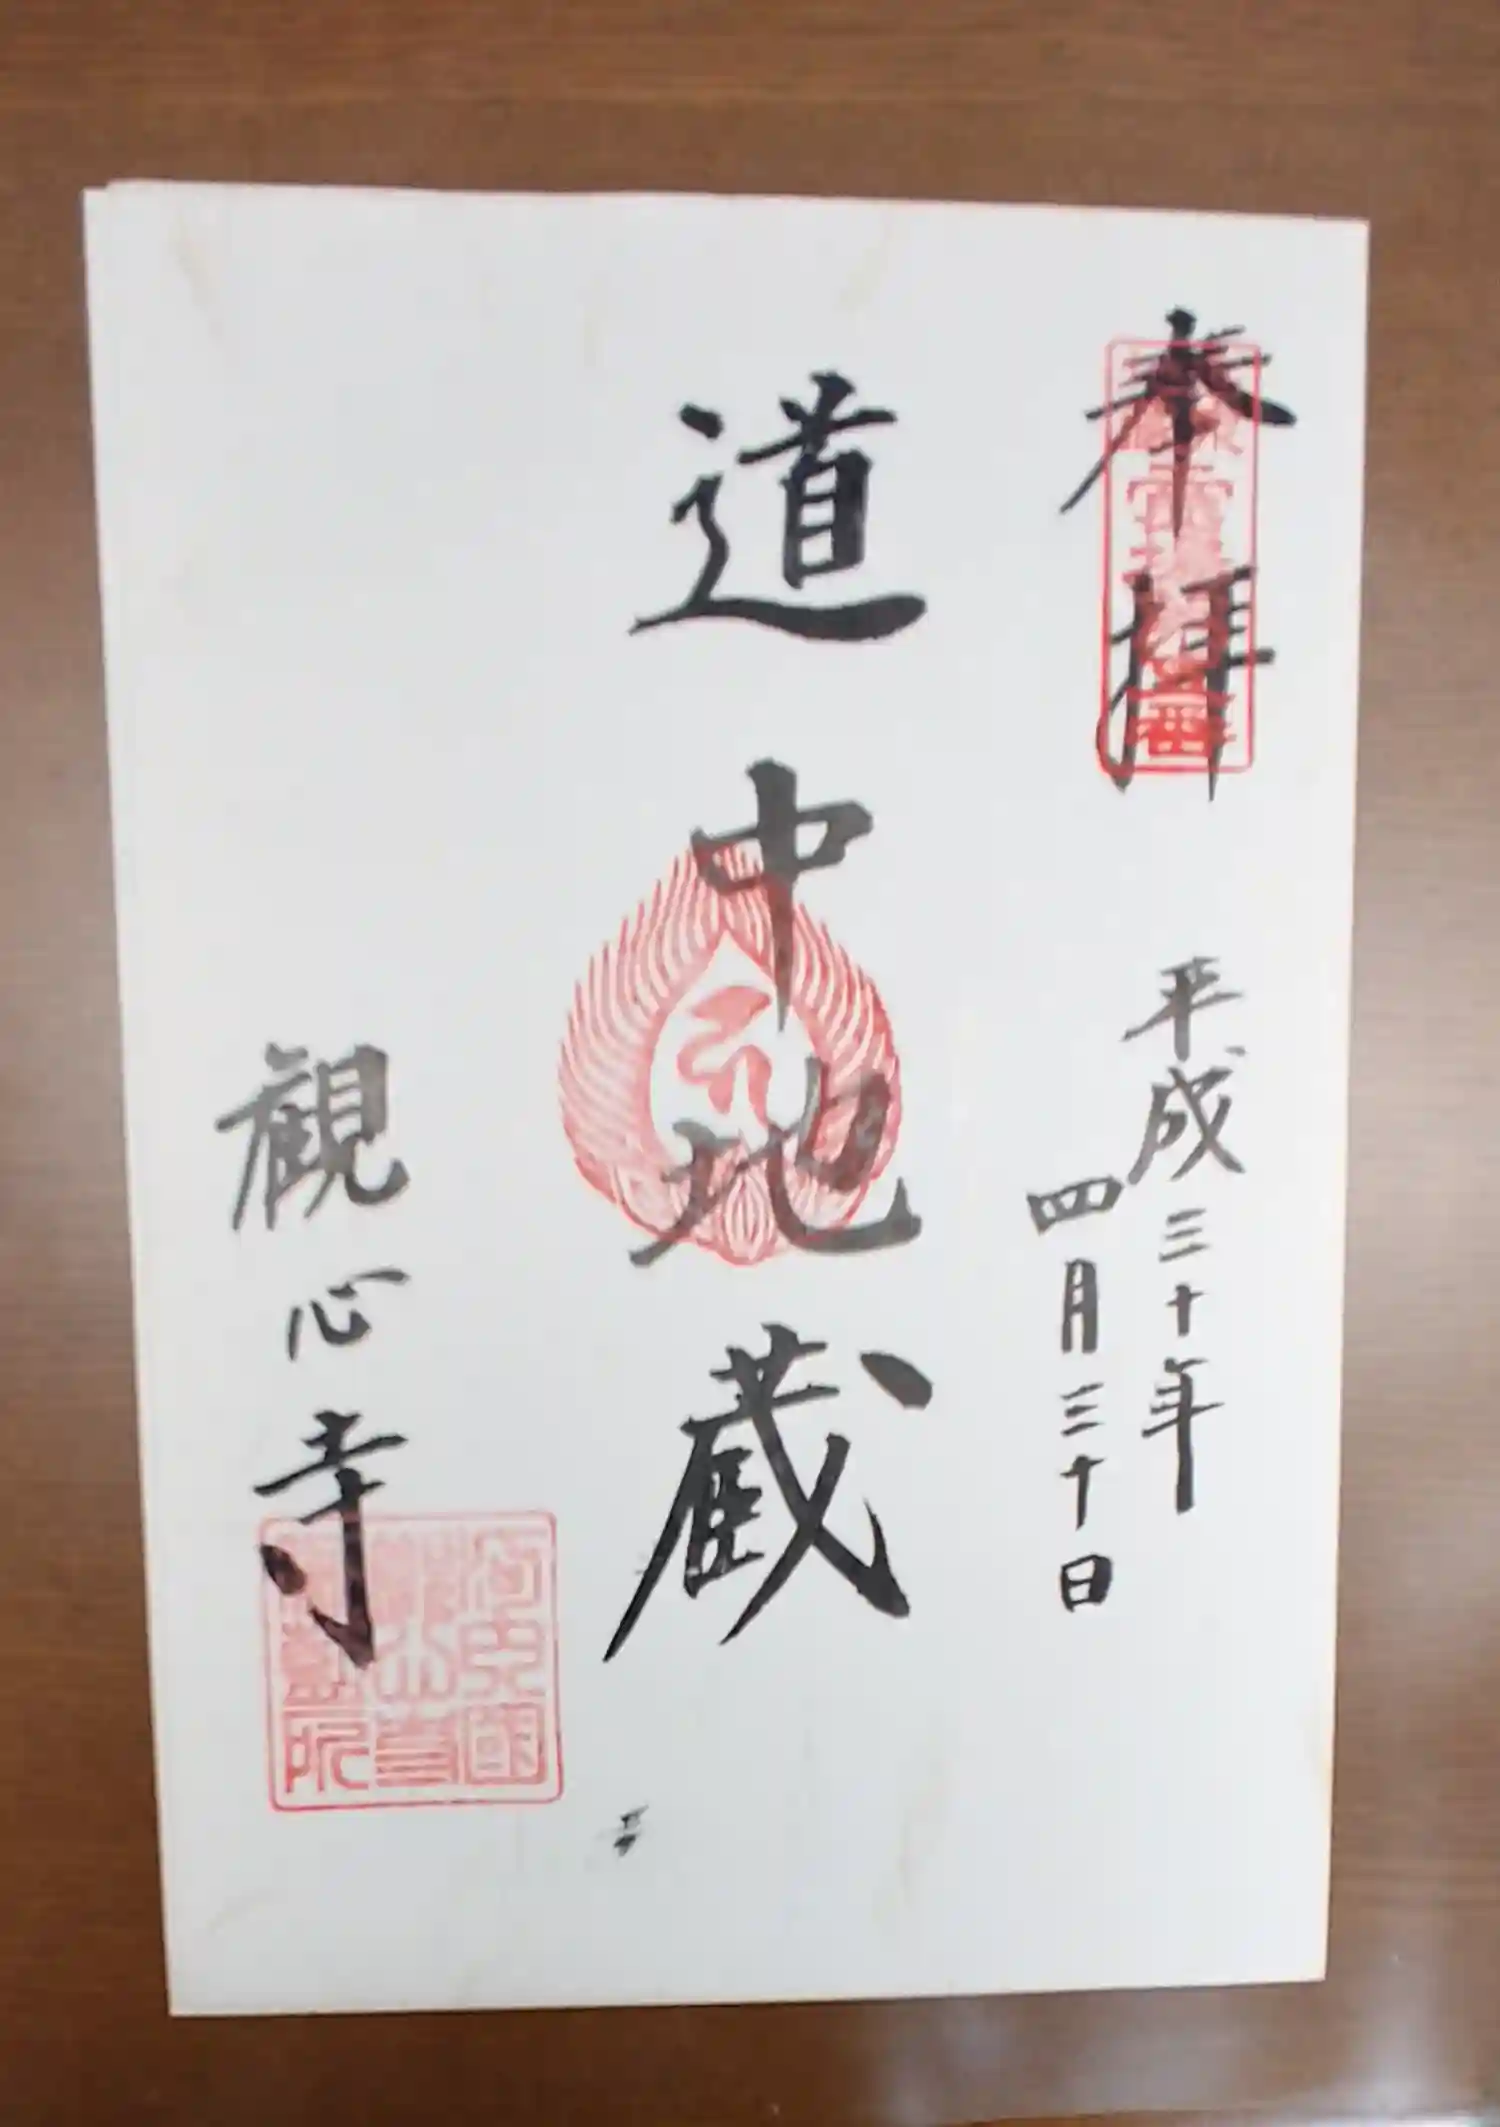 奉拝
平成三十年
四月三十日
道中地蔵
観心寺